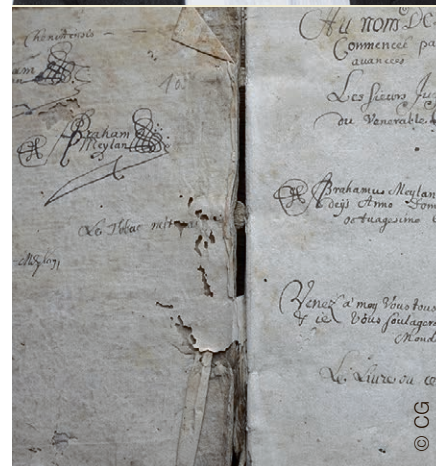 Chenitensis
am
Abraham
Meylan
Le Tabac
Meylan
Au nom DE
Commencé pa
avancées
Les sieurs Jug
du Venerable
Abrahamus Meylan
Anno Dom
octuagesimo
Venez a moy Vous tous
Vous soulager
Monde
Le Livre ou ce
© CG